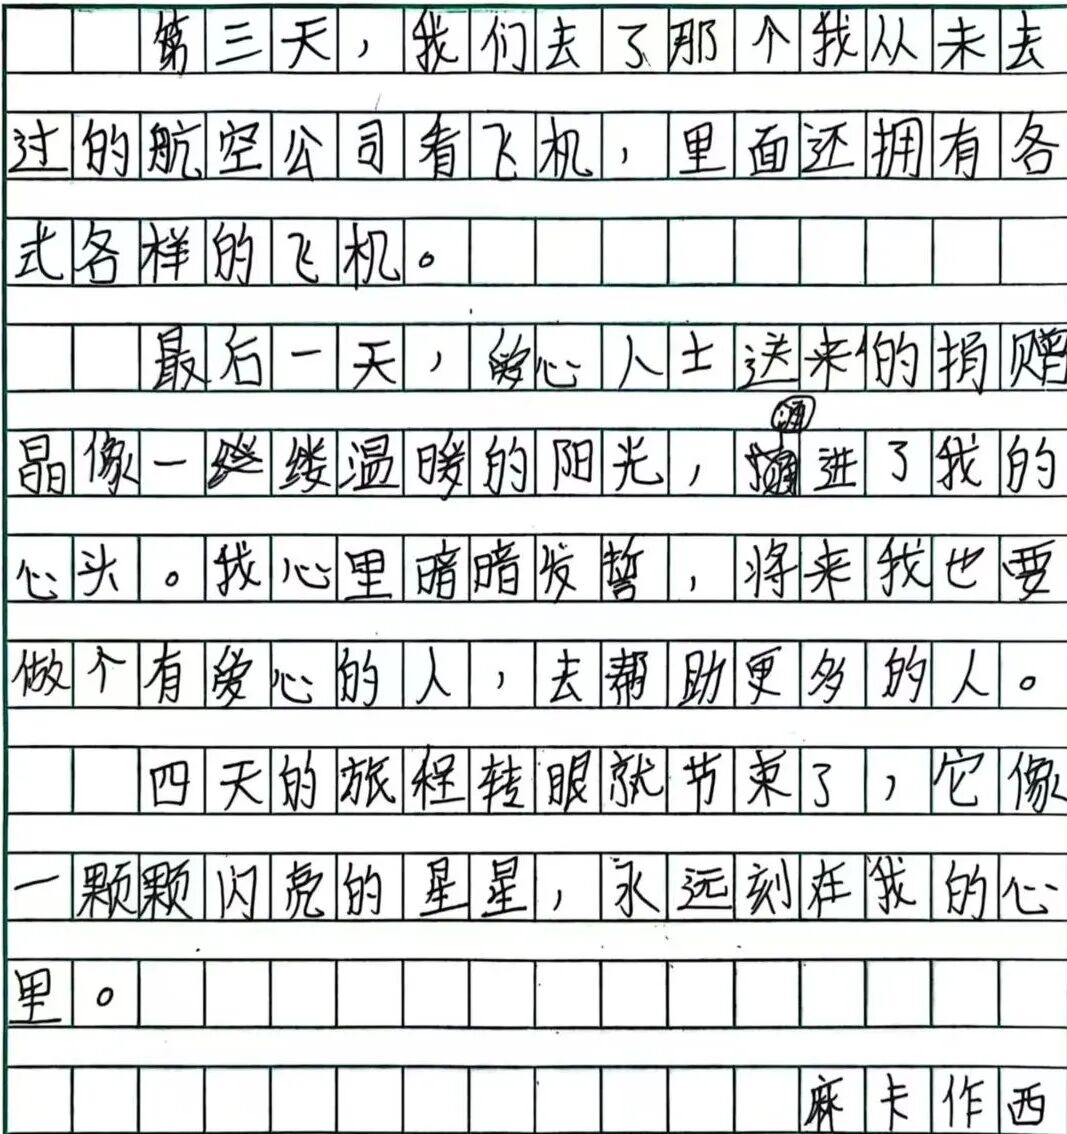 第三天，我们去了那个我从未去
过的航空公司看飞机，里面还拥有各
式各样的飞机。
最后一天，爱心人士送来的捐赠
晶像一缕温暖的阳光，涌进了我的
心头。我心里暗暗发誓，将来我也要
做个有爱心的人，去帮助更多的人。
四天的旅程转眼就节束了，它像
一颗颗闪亮的星星，永远刻在我的心
里。
麻卡作西